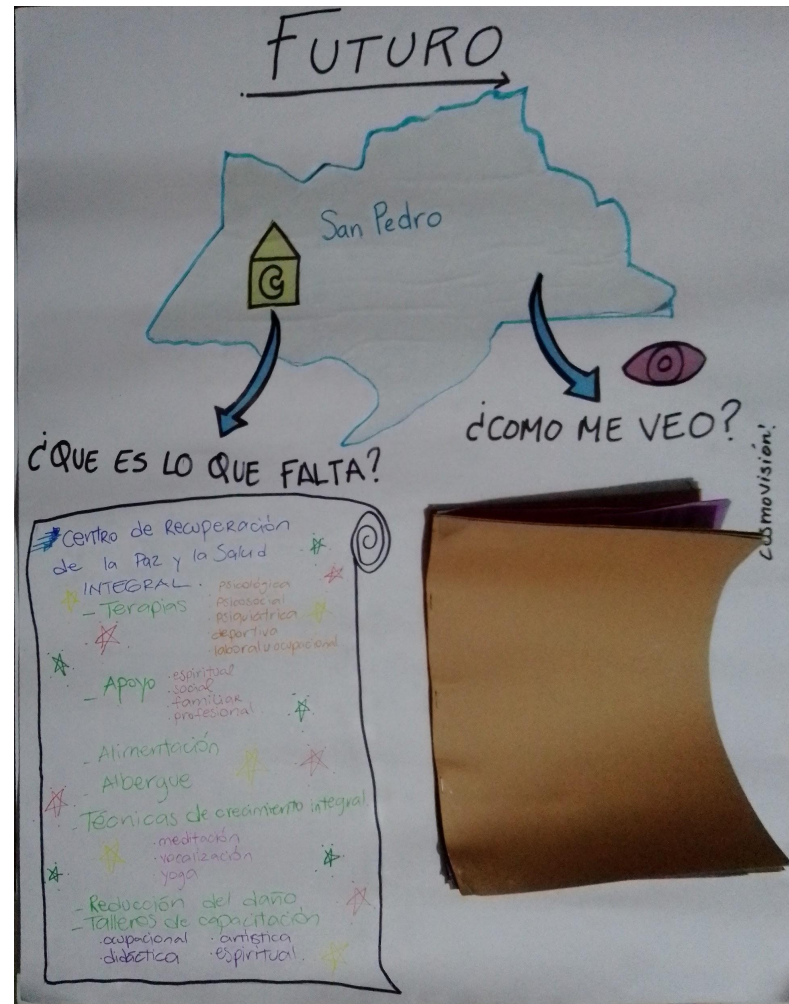 FUTURO
San Pedro
C
¿COMO ME VEO?
cosmovisión!
¿QUE ES LO QUE FALTA?
Centro de Recuperación
de la Paz y la Salud
INTEGRAL.
- Terapias
· psicológica
· psicosocial
· psiquiátrica
deportiva
· laboral u ocupacional
- Apoyo
· espiritual
· social
· familiar
· profesional
- Alimentación
- Albergue
- Técnicas de crecimiento integral
· meditación
· vocalización
yoga
- Reducción del daño
- Talleres de capacitación
· ocupacional · artística
· didáctica · espiritual.